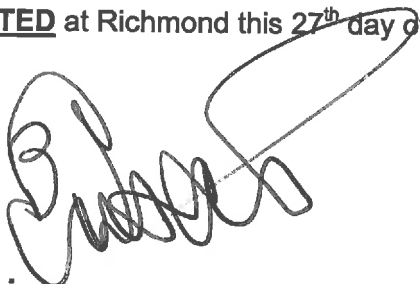 TED at Richmond this 27th day o